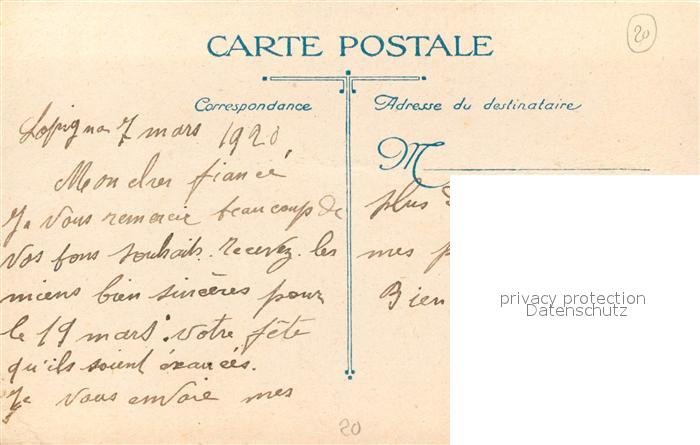 20
CARTE POSTALE
Correspondance
Adresse du destinataire
M
Lopigna 7 mars 1920
Mon cher fiancé
Je vous remercie beaucoup de
vos bons souhaits. recevez les
miens bien sincères pour
le 19 mars. votre fête
qu'ils soient éxaucés.
Je vous envoie mes
plus
mes
Bien
privacy protection
Datenschutz
20